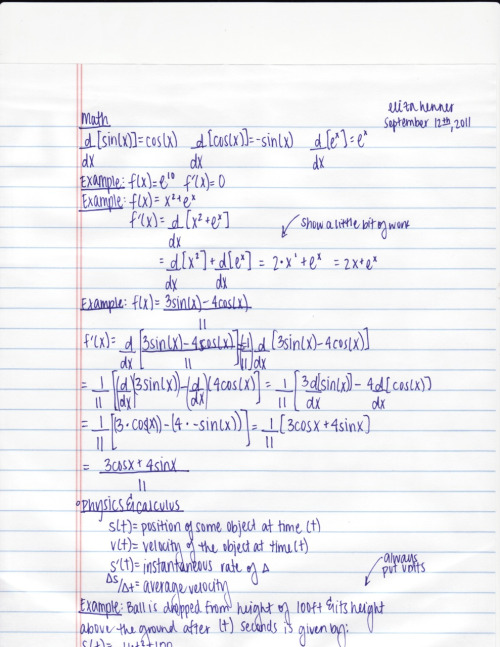 eliza henner
September 12th, 2011
Math
d/dx [sin(x)]=cos(x)   d/dx [cos(x)]=-sin(x)   d/dx [eˣ]=eˣ
Example: f(x)=e¹⁰  f'(x)=0
Example: f(x)= x²+eˣ
f'(x)= d/dx [x²+eˣ]
show a little bit of work
= d/dx [x²] + d/dx [eˣ] = 2·x¹+eˣ = 2x+eˣ
Example: f(x)= 3sin(x)-4cos(x)/11
f'(x)= d/dx [3sin(x)-4cos(x)/11] = (1/11) d/dx [3sin(x)-4cos(x)]
= 1/11 [(d/dx)(3sin(x))-(d/dx)(4cos(x))] = 1/11 [3d/dx[sin(x)] - 4d/dx[cos(x)]]
= 1/11 [(3·cos(x))-(4·-sin(x))] = 1/11 [3cosx+4sinx]
= 3cosx+4sinx/11
Physics & Calculus
s(t)= position of some object at time (t)
v(t)= velocity of the object at time(t)
s'(t)= instantaneous rate of Δ
Δs/Δt= average velocity
always
put units
Example: Ball is dropped from height of 100ft & its height
above the ground after (t) seconds is given by: